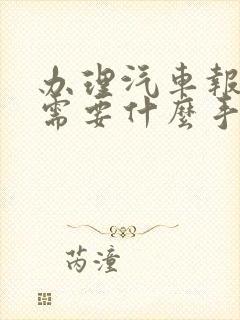 办理汽車報
需要什麼手
芮潼